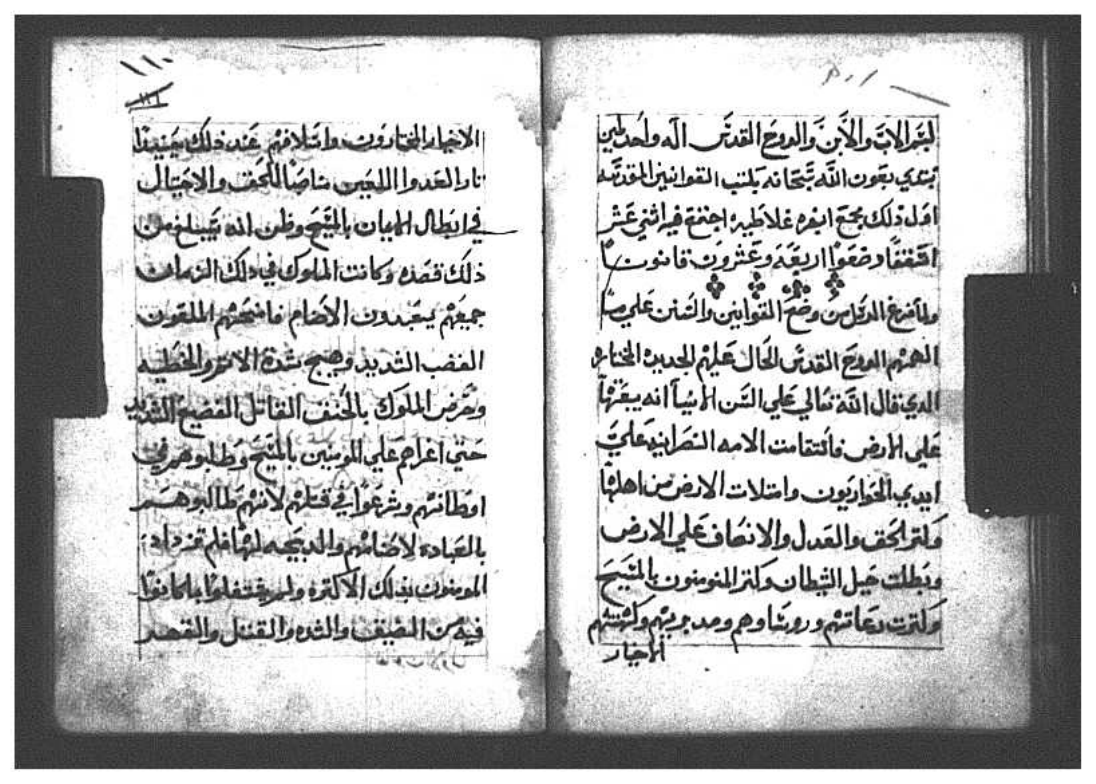 بسم الاب والابن والروح القدس الاه واحد
نبتدي بعون الله سبحانه بكتب القوانين المقدسه
اول ذلك مجمع انقره غلاطيه اجتمع فيه اثني عشر
اسقفا وضعوا اربعه وعشرون قانونا
ولما فرغ الرسل من وضع القوانين والسنن علي ما
الهمهم الروح القدس الحال عليهم الجديده المختاره
الدي قال الله تعالي علي السن الانبيا انه يبعثها
علي الارض فاستقامت الامه النصرانيه علي
ايدي الحواريون وامتلات الارض من اهلها
وكثر الحق والعدل والانصاف علي الارض
وبطلت حيل الشيطان وكثر المومنون بالمسيح
وكثرت رعاتهم وروساوهم ومدبريهم وكهنتهم
الاخيار
الاخيار المختارون وايتلافهم عند ذلك حينيدا
ثار العدوا اللعين ناصبا للحق والاحتيال
في ابطال الايمان بالمسيح وظن انه سيبلغ من
ذلك قصده وكانت الملوك في ذلك الزمان
جميعهم يعبدون الاصنام فاضحتهم الملقون
الغضب الشديد وهيج شدة الاثم والخطيه
وحرض الملوك بالحنف القاتل الفضيع الشديد
حتي اغراهم علي المومنين بالمسيح وطلبوهم في
اوطانهم وشرعوا في قتلهم لانهم طالبوهم
بالعباده لاصنامهم والدبيحه لها فلم تزداد
المومنون بذلك الا كثره ولم يحتفلوا بما كانوا
فيه من الضيق والشده والقتل والقهر